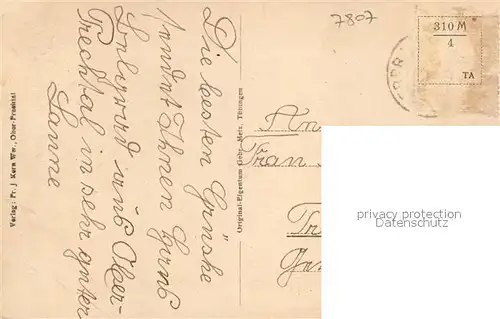 Die besten Grüsse
sendet Ihnen
aus Ober-
Prechtal in sehr guter
Laune
Verlag: Fr. J. Kern Ww., Ober Prechtal
Original-Eigentum Gebr. Metz, Tübingen
7807
310 M
4
TA
An
Frau
privacy protection
copyright watermark